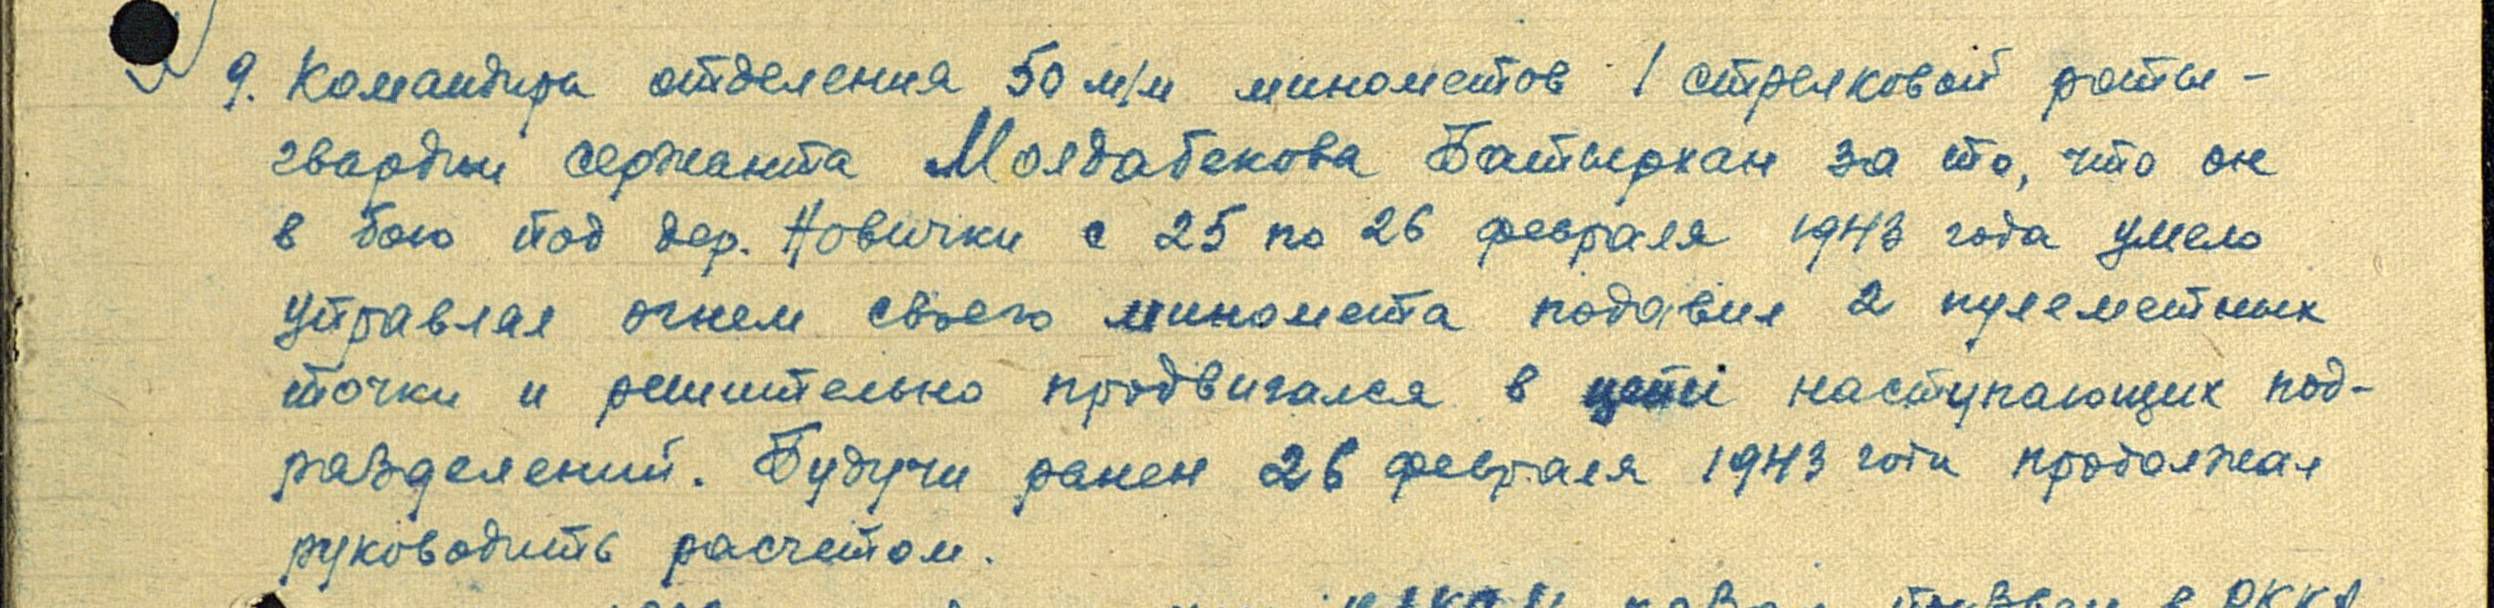 9. Командира отделения 50 м/м минометов 1 стрелковой роты -
гвардии сержанта Молдабекова Батырхан за то, что он
в бою под дер. Новички с 25 по 26 февраля 1943 года умело
управляя огнем своего миномета подавил 2 пулеметных
точки и решительно продвигался в цепи наступающих под-
разделений. Будучи ранен 26 февраля 1943 года продолжал
руководить расчетом.
в РККА